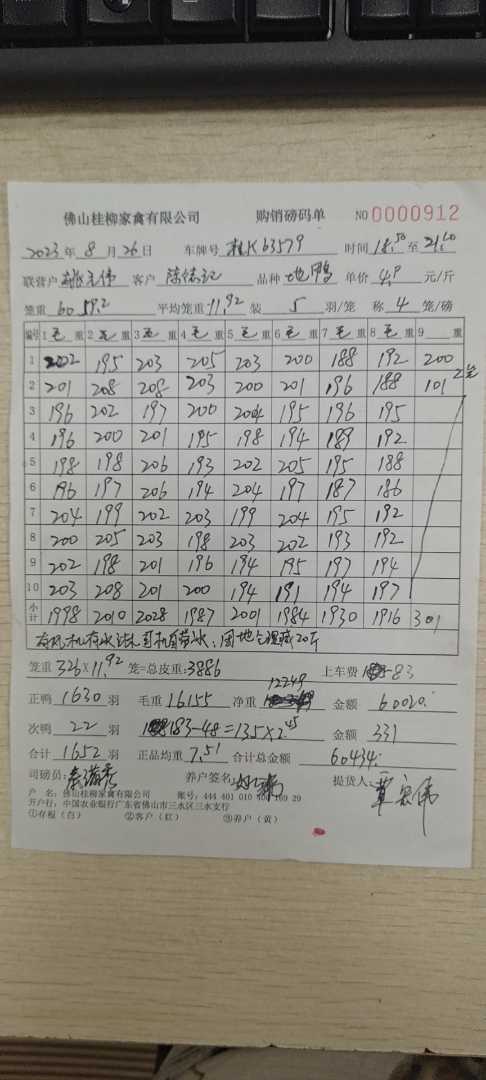 佛山桂柳家禽有限公司 购销磅码单 NO 0000912
2023 年 8 月 26 日 车牌号 桂K63579 时间 18:50 至 21:60
联营户 客户 品种 地鸭 单价 4.9 元/斤
笼重 60 59.2 平均笼重 11.92 装 5 羽/笼 称 4 笼/磅
编号 1 毛 重 2 毛 重 3 毛 重 4 毛 重 5 毛 重 6 毛 重 7 毛 重 8 毛 重 9 重
1 202 195 203 205 203 200 188 192 200
2 201 208 208 203 200 201 196 188 101 2笼
3 196 202 197 200 204 195 196 195
4 196 200 201 195 198 194 189 192
5 198 198 206 193 202 205 195 188
6 196 197 206 194 204 197 187 186
7 204 199 202 203 199 204 195 192
8 200 205 203 198 203 202 193 192
9 202 198 201 196 194 195 197 194
10 203 208 201 200 194 191 194 197
小计 1998 2010 2028 1987 2001 1984 1930 1916 301
有风机有水 司机自带水 20斤
笼重 326×11.92 笼=总皮重:3886 上车费 83
12249
正鸭 1630 羽 毛重 16155 净重 金额 60020.
次鸭 22 羽 183-48=135×2.45 金额 331
合计 1652 羽 正品均重 7.51 合计总金额 60434.
司磅员: 养户签名: 提货人:
户 名: 佛山桂柳家禽有限公司 账号: 444 401 010 400 169 29
开户行: 中国农业银行广东省佛山市三水区三水支行
①存根（白） ②客户（红） ③养户（黄）